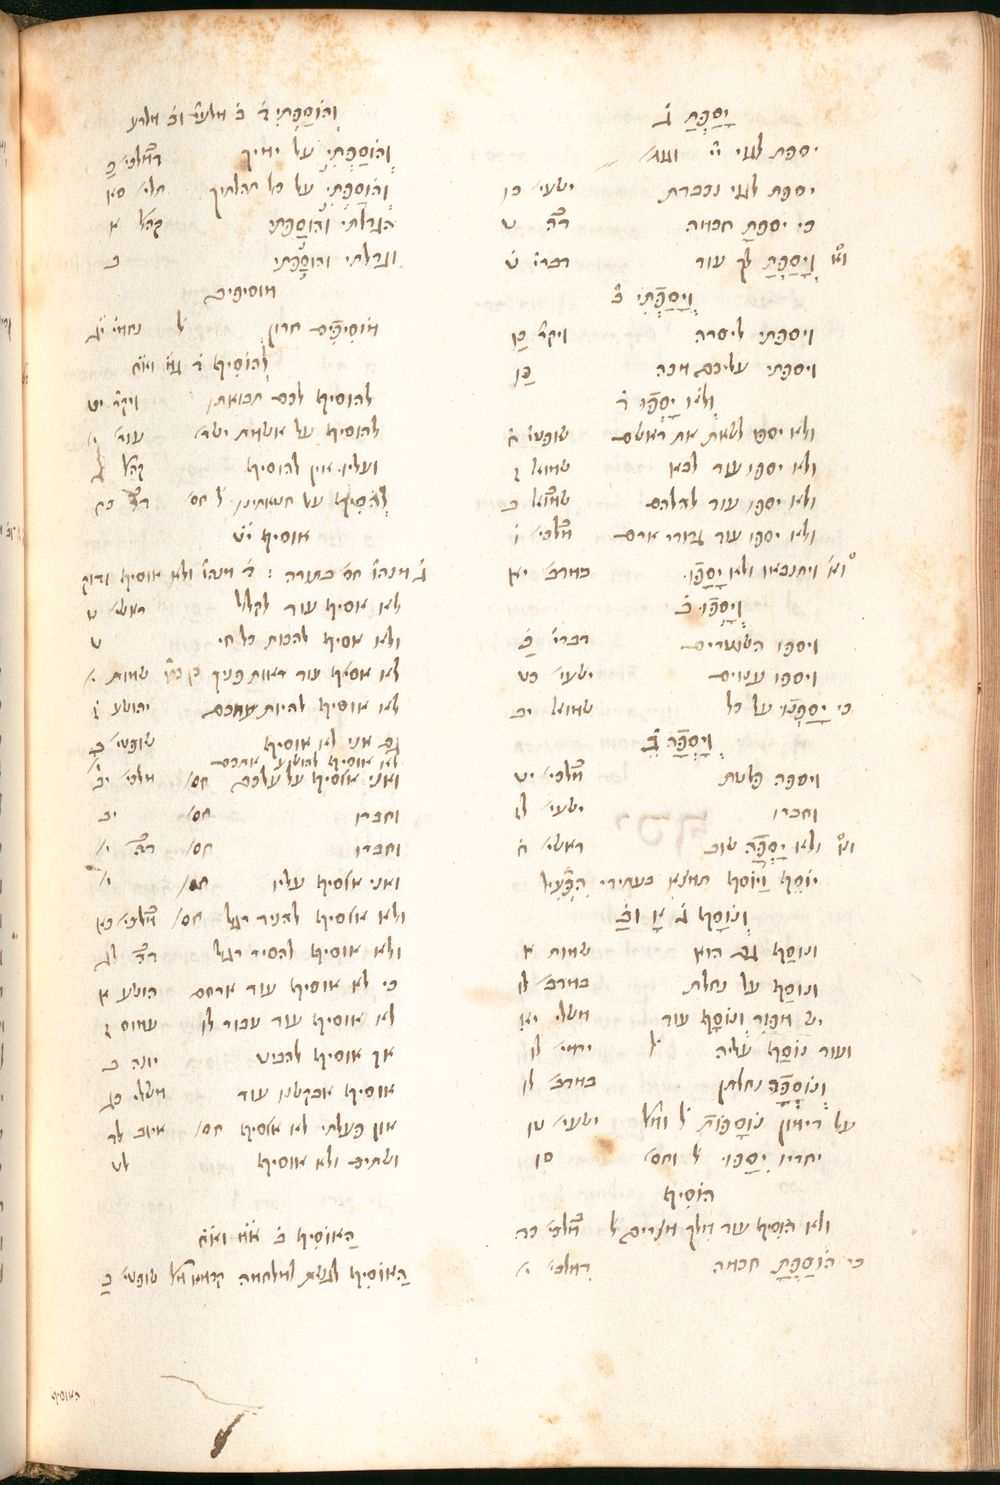 יָסַפְתָּ ג̇
יספת לגוי יי׳
יספת לגוי נכבדת ישעי׳ כו
כי יספת חכמה דה̇ ט
וא̇ וְיָסַפְתָּ לך עוד דברי׳ יט
וְיָסַפְתִּי ב̇
ויספתי ליסרה ויקר̇ כו
ויספתי עליכם מכה כו
וְלֹא יָסְפוּ ד̇
ולא יספו לשאת את ראשם שופטי׳ ח
ולא יספו עוד לבא שמואל ז
ולא יספו עוד להלחם שמ̇ואל ב
ולא יספו עוד גדודי ארם מ̇לכי׳ ו
וא̇ ויתנבאו ולא יָסָפוּ במדב׳ יא
וְיָסְפוּ ב̇
ויספו השטרים דברי׳ כ
ויספו ענוים ישעי׳ כט
כי יָסַפְנוּ על כל שמואל יב
וְיָסְפָה ב̇
ויספה פליטת מ̇לכי׳ יט
וחברו ישעי׳ לז
וא̇ ולא יָסְפָה שוב ראשי׳ ח
יוֹסֵף וַיּוֹסֶף תמצא בעתידי הִפְעִיל
וְנוֹסַף ג̇
ונוסַף גם הוא שמות א
ונוסַף על נחלת במדב׳ לו
יש מפזר וְנוֹסָף עוד משלי יא
ועוד נוֹסַף עליה ל̇ ירמי׳ לו
וְנוֹסְפָה נחלתן במדב׳ לו
על דימון נוֹסָפוֹת ל̇ ומל̇ ישעי׳ טו
יחדיו יִסַפוּ׳ ל̇ וחס׳ סו
הוֹסִיף
ולא הוסיף עוד מלך מצרים ל̇ מ̇לכי׳ כד
כי הוֹסַפְתָּ חכמה מלכי׳ י׳
וְהוֹסַפְתִּי ד̇ ב̇ מלעי׳ וב̇ מלרע
וְהוֹסַפְתִּי על ימיך מ̇לכי׳ כ
וְהוֹסַפְתִּי על כל תהלתיך תלי׳
הגדלתי והוספתי קהל̇ א
וגדלתי והוספתי ב
מוסיפים
מוֹסִיפִים חרון ל̇ נחמי׳ יג
לְהוֹסִיף ד̇
להוסיף לכם תבואתו ויקר̇ יט
להוסיף על אשמת ישר׳ עזר׳ י׳
ועליו אין להוסיף קהל̇ ג
לְהֹסִיף על חטאתינו ל̇ חס׳ דה̇ כח
אוסיף
לא אוסיף עוד לקלל ראשי׳ ח
ולא אוסיף להכות כל חי ח
לא אסיף עוד ראות פניך שמות י׳
לא אוסיף להיות עמכם יהושע ז
גם אני לא אוסיף שופטי׳ ב
לא אוסיף להושיע אתכם
ואני אוסיף על עלכם חס׳ מלכי׳ יב
וחברו חס׳ יב
וחברו חס׳ דה̇ י׳
ואני אוסיף עליו חס׳ י׳
ולא אוסיף להניד רגל חס׳ מ̇לכי׳ כא
ולא אוסיף להסיר רגל דה̇ לג
כי לא אוסיף עוד ארחם הושע א
לא אוסיף עוד עבור לו עמוס ז
אך אוסיף להביט יונה ב
אוסיף אבקשנו עוד משלי כג
און פעלתי לא אסיף חס׳ איוב לד
ושתים ולא אוסיף
הַאוֹסִיף ב̇
הַאוֹסִיף לגשת למלחמה שופטי׳ כ
האוסיף